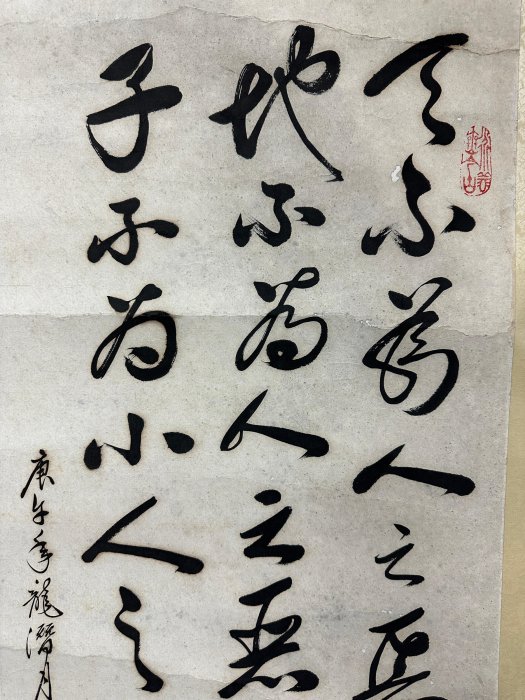 天不為人之惡
地不為人之惡
子不為小人之
庚午年龍潛月